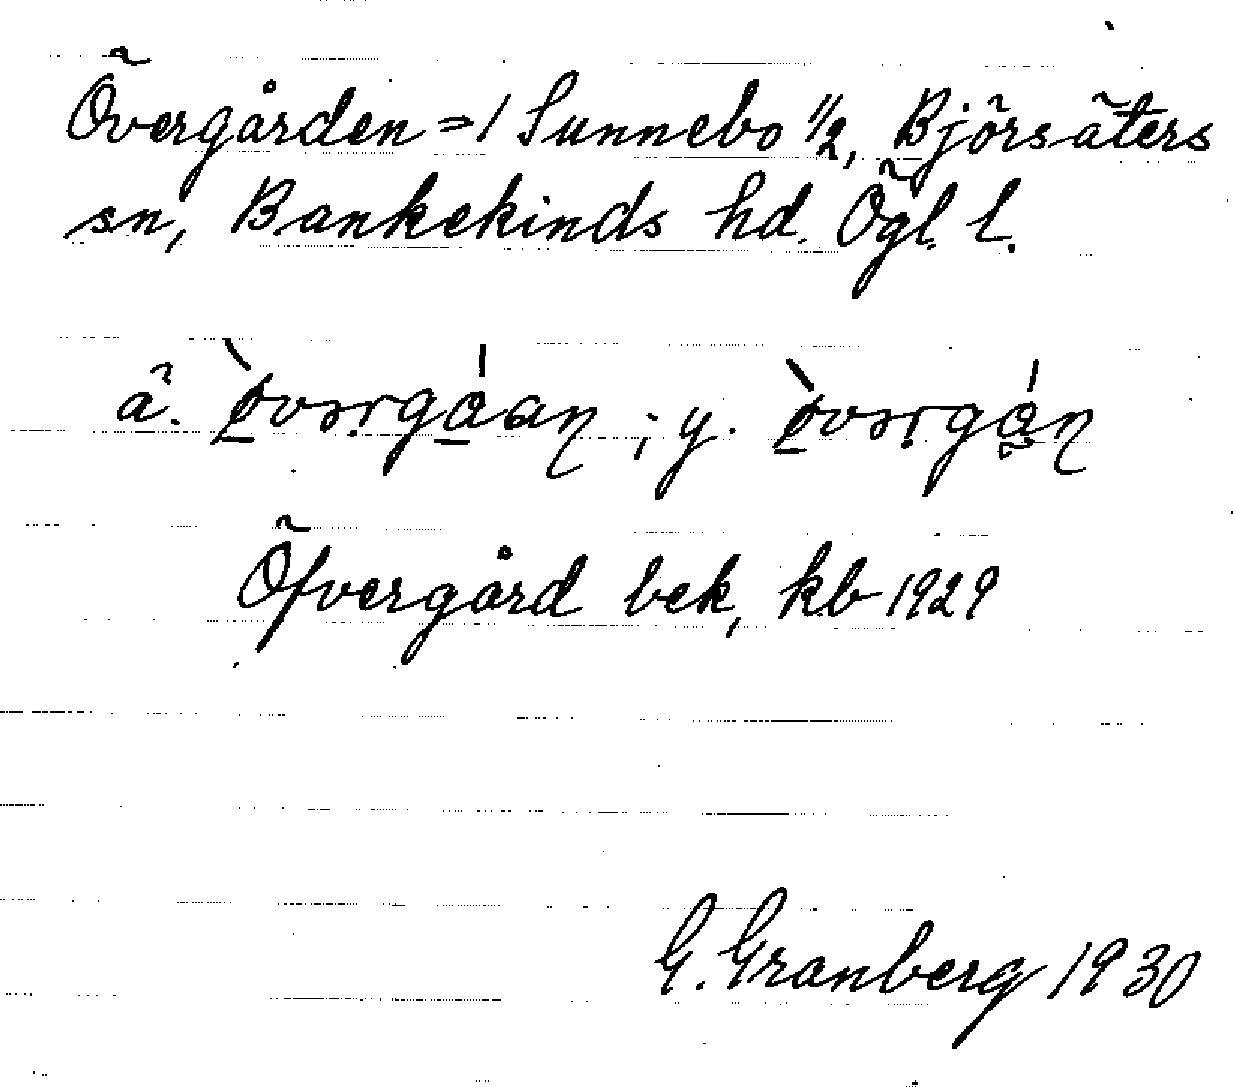 Övergården = / Sunnebo 1/2, Björsäters
sn, Bankekinds hd. Ögl. l.
ä. ; y.
Öfvergård bek, kb 1929
G. Granberg 1930